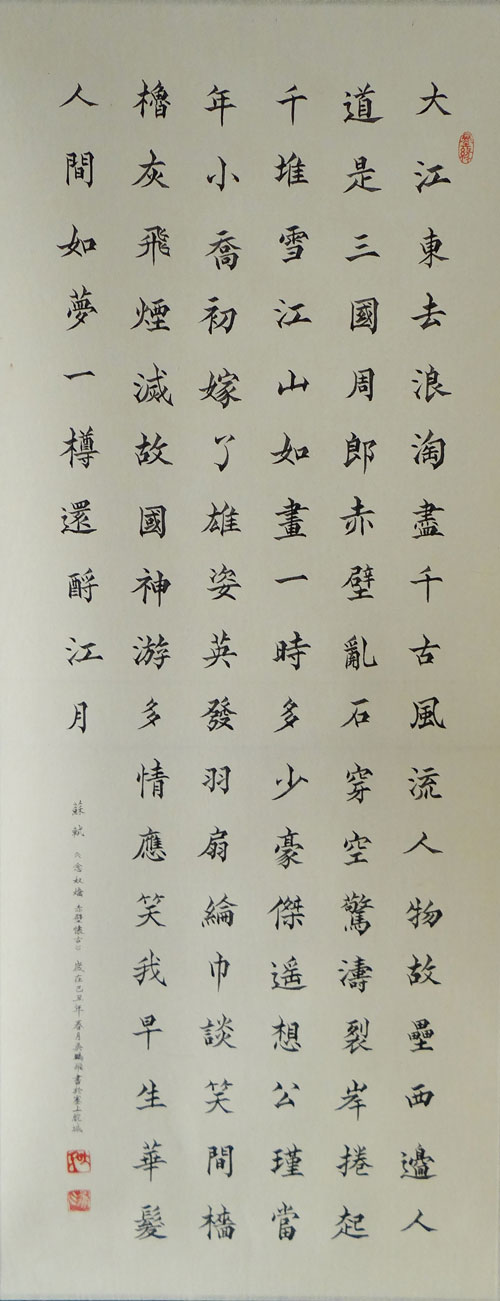 大江東去浪淘盡千古風流人物故壘西邊人
道是三國周郎赤壁亂石穿空驚濤裂岸捲起
千堆雪江山如畫一時多少豪傑遥想公瑾當
年小喬初嫁了雄姿英發羽扇綸巾談笑間檣
櫓灰飛煙滅故國神游多情應笑我早生華髮
人間如夢一樽還酹江月
蘇軾 念奴嬌 赤壁懷古 歲在己丑年春月